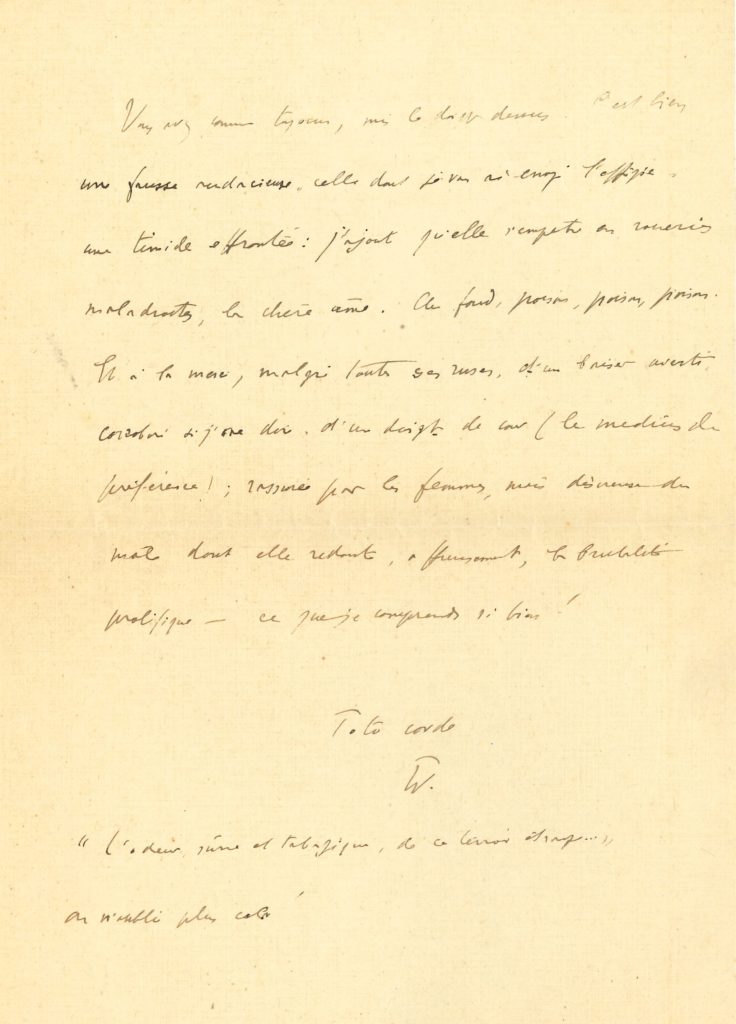 Vous avez, comme toujours, mis le doigt dessus. C'est bien
une fausse audacieuse, celle dont je vous ai envoyé l'effigie.
une timide effrontée : j'ajoute qu'elle s'empêtre en roueries
maladroites, la chère âme. Au fond, poison, poison, poison.
Et à la merci, malgré toutes ses ruses, d'un baiser averti,
corroboré si j'ose dire, d'un doigt de cour (le medius de
préférence) ; rassurée par les femmes, mais désireuse du
mâle dont elle redoute, affreusement, la brutalité
prolifique — ce que je comprends si bien !
Toto corde
W.
" L'odeur, et tabagique, de ce terroir étrange... "
on n'oublie plus cela !